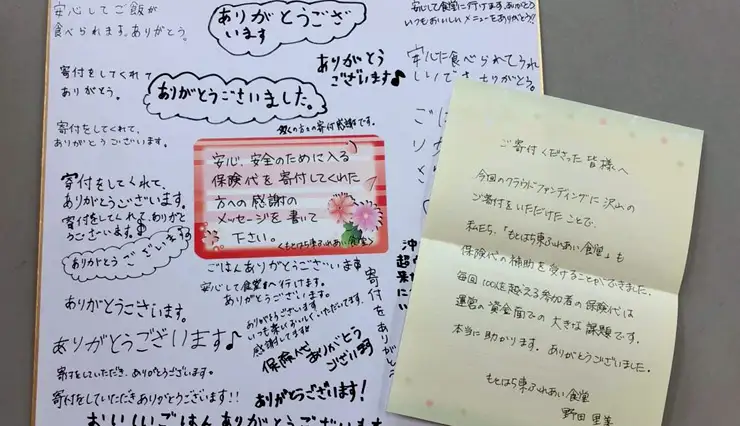 安心してご飯が
食べられます。ありがとう。
ありがとうござ
います
安心して食堂に行けます。ありがとう
いつもおいしいメニューをありがとう!!
ありがとう
ございます♪
安心た食べられてうれ
しいです。ありがとう。
寄付をしてくれて
ありがとう。
ありがとうございました。
多くの方々の寄付感謝です。
寄付をしてくれて、
ありがとうございます。
安心、安全のために入る
保険代を寄付してくれた
方への感謝の
メッセージを書いて
下さい。
<もとはら東ふれあい食堂>
寄付をしてくれて、
ありがとうございます。
寄付をしてくれて、ありがと
うございます。
ありがとうございます
ごはんありがとうございいます
安心して食堂すへ行けます。
ありがとうございます。
ありがとうございます
いつも楽しおいしくいただいてます。
感謝してます!
ありがとうございます。
ありがとうございます♪
保険代
ありがとう
ござい
寄付をしていただき、ありがとうございます。
寄付をしていただきありがとうございます!!
ありがとうございます!
おいしいごはんありがとうございま
寄付をありがとう
ご寄付くださった皆様へ
今回のクラウドファンディングに沢山の
ご寄付をいただけたことで、
私たち、「もとはら東ふれあい食堂」も
保険代の補助を受けることができました。
毎回100名を越える参加者の保険代は
運営の資金面での大きな課題です。
本当に助かります。ありがとうございました。
もとはら東ふれあい食堂
野田 里美